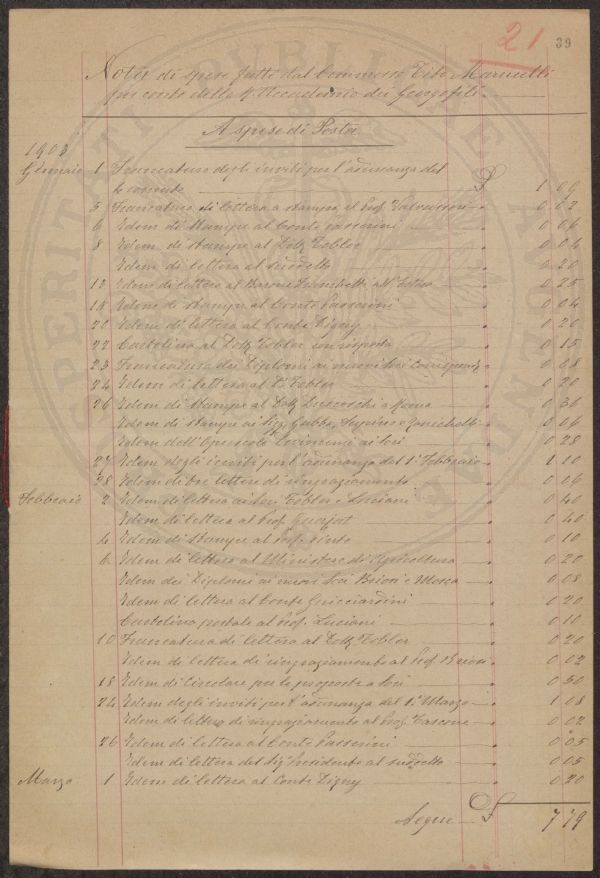 21 39
Note di spese fatte dal Commesso Tito Marucelli
per conto della R. Accademia dei Georgofili
PROSPERITATI PUBLICAE AUGENDAE
A spese di Posta
1903
Gennaio 1 Francatura degli inviti per l'adunanza del
4 corrente £ 1 06
5 Francatura di lettera e stampe al Prof. Valvassori 0 02
6 Idem di stampe al Conte Passerini 0 06
8 Idem di stampe al Dott. Tobler 0 04
Idem di lettera al suddetto 0 20
12 Idem di lettera al Barone Franchetti all'Estero 0 25
15 Idem di stampe al Conte Passerini 0 04
20 Idem di lettera al Conte Digny 0 20
22 Cartolina al Dott. Tobler con risposta 0 15
23 Francatura dei Diplomi ai nuovi Soci Corrispond. 0 08
24 Idem di lettera al D. Tobler 0 20
26 Idem di stampe al Dott. a Roma 0 36
Idem di stampe ai Sig. Gabba, e 0 06
Idem dell'Opuscolo ai Soci 0 28
27 Idem degli inviti per l'adunanza del 1° Febbraio 1 10
28 Idem di tre lettere di ringraziamento 0 06
Febbraio 2 Idem di lettera ai Soci Tobler e Luciani 0 40
Idem di lettera al Prof. 0 40
4 Idem di stampe al Prof. 0 10
6 Idem di lettera al Ministero di Agricoltura 0 20
Idem dei Diplomi ai nuovi Soci Briosi e Mosca 0 08
Idem di lettera al Conte Guicciardini 0 20
Cartolina postale al Prof. Luciani 0 10
10 Francatura di lettera al Dott. Tobler 0 20
Idem di lettera di ringraziamento al Prof. Briosi 0 02
18 Idem di Circolare per le proposte a Soci 0 50
24 Idem degli inviti per l'adunanza del 1° Marzo 1 08
Idem di lettera di ringraziamento al Prof. Tascone 0 02
26 Idem di lettera al Conte Passerini 0 05
Idem di lettera del Sig. Presidente al suddetto 0 05
Marzo 1 Idem di lettera al Conte Digny 0 20
Segue £ 7 79